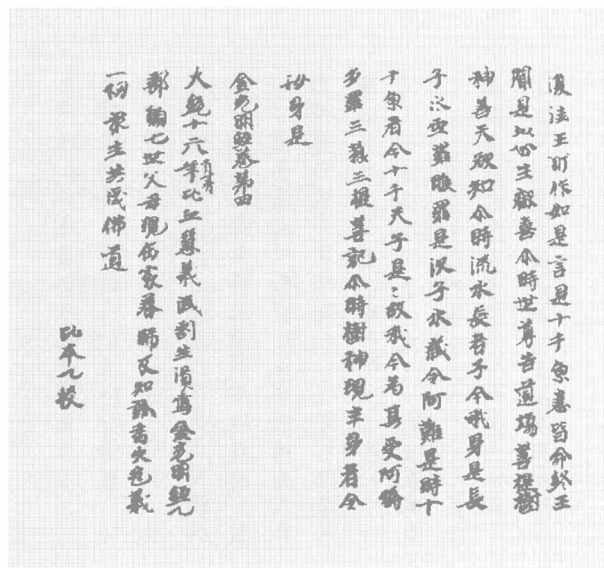 復法王所作如是言是十千魚悉皆命終王
聞是以心生歡喜尒時世尊告道場菩提樹
神善天欲知尒時流水長者子今我身是長
子水空羅睺羅是次子水藏今阿難是時十
千魚者今十千天子是〻故我今為其受阿耨
多羅三藐三提善記尒時樹神現半身者今
汝身是
金光明經卷第四
大統十六年比丘慧義減割生資寫金光明經一
部願七世父母現在家眷師及知識香火邑義
一切眾生共成佛道
比本已校